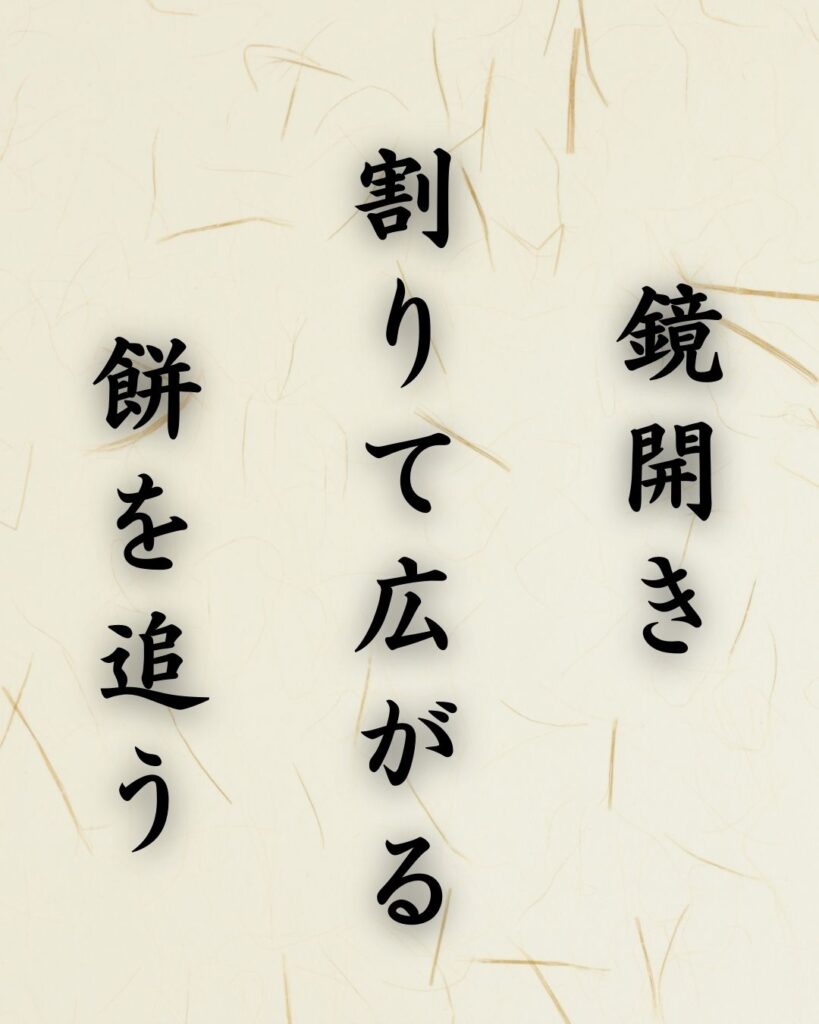 鏡開き
割りて広がる
餅を追う